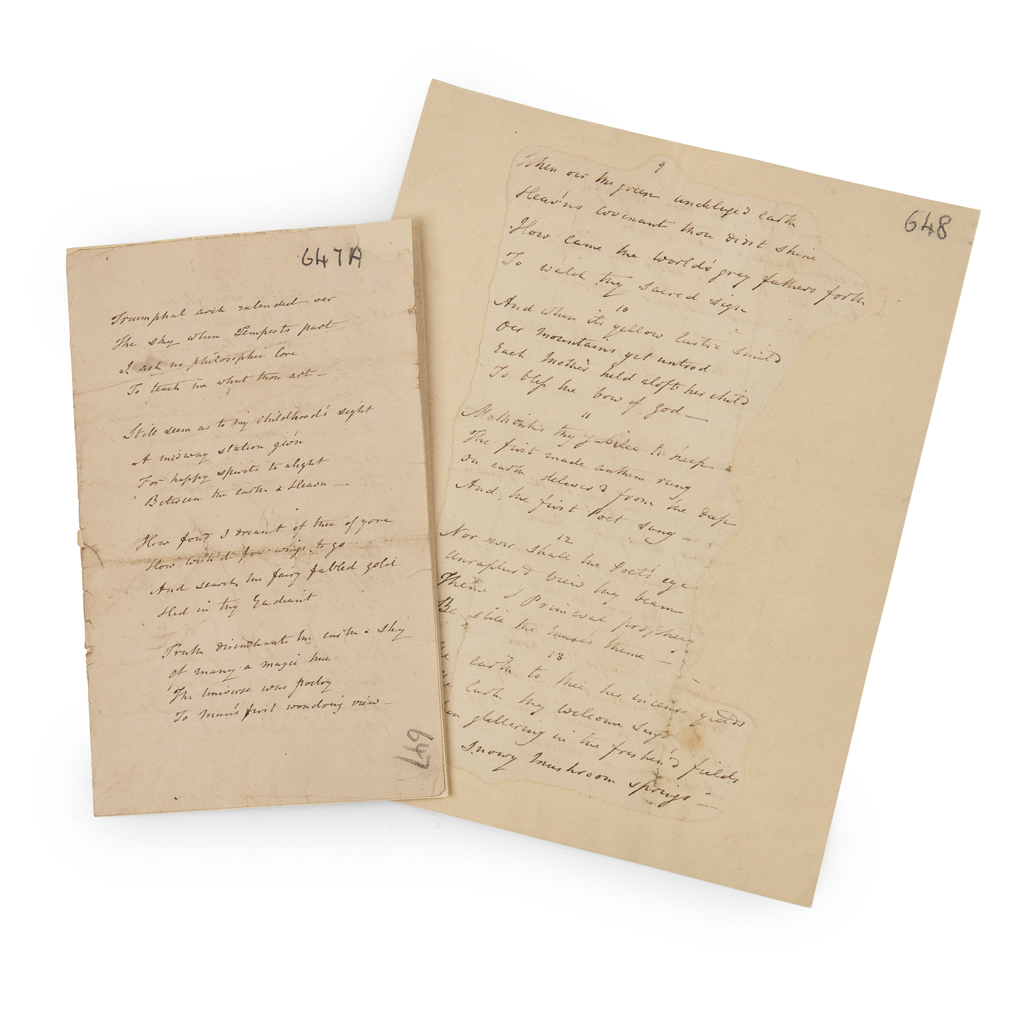 647A
Triumphal arch extended oer
The sky when Tempests part
I ask no philosophic lore
To teach me what thou art —
Still seem as to my childhood's sight
A midway station giv'n
For happy spirits to alight
Between the earth & Heavn —
How fond I dreamt of thee of yore
How wish'd for wings to go
And search the fairy fabled gold
Hid in thy Gradient
Truth disenchants the earth & sky
of many a magic hue
The universe was poetry
To man's first wondring view —
647
648
9
When oer the green undeluged earth
Heav'ns covenant thou didst shine
How came the world's grey fathers forth
To watch thy sacred sign
10
And when its yellow lustre smild
Oer mountains yet untrod
Each Mother held aloft her child
To bless the bow of God —
11
Methinks thy jubilee to keep
The first made anthem rung
On earth deliver'd from the deep
And the first Poet sung —
12
Nor ever shall the Poet's eye
Unraptur'd view thy beam
Theme of Primeval prophecy
Be still the Muse's theme —
13
earth to thee her incense yields
Lark thy welcome sings
glittering in the freshen'd fields
Snowy mushroom springs —